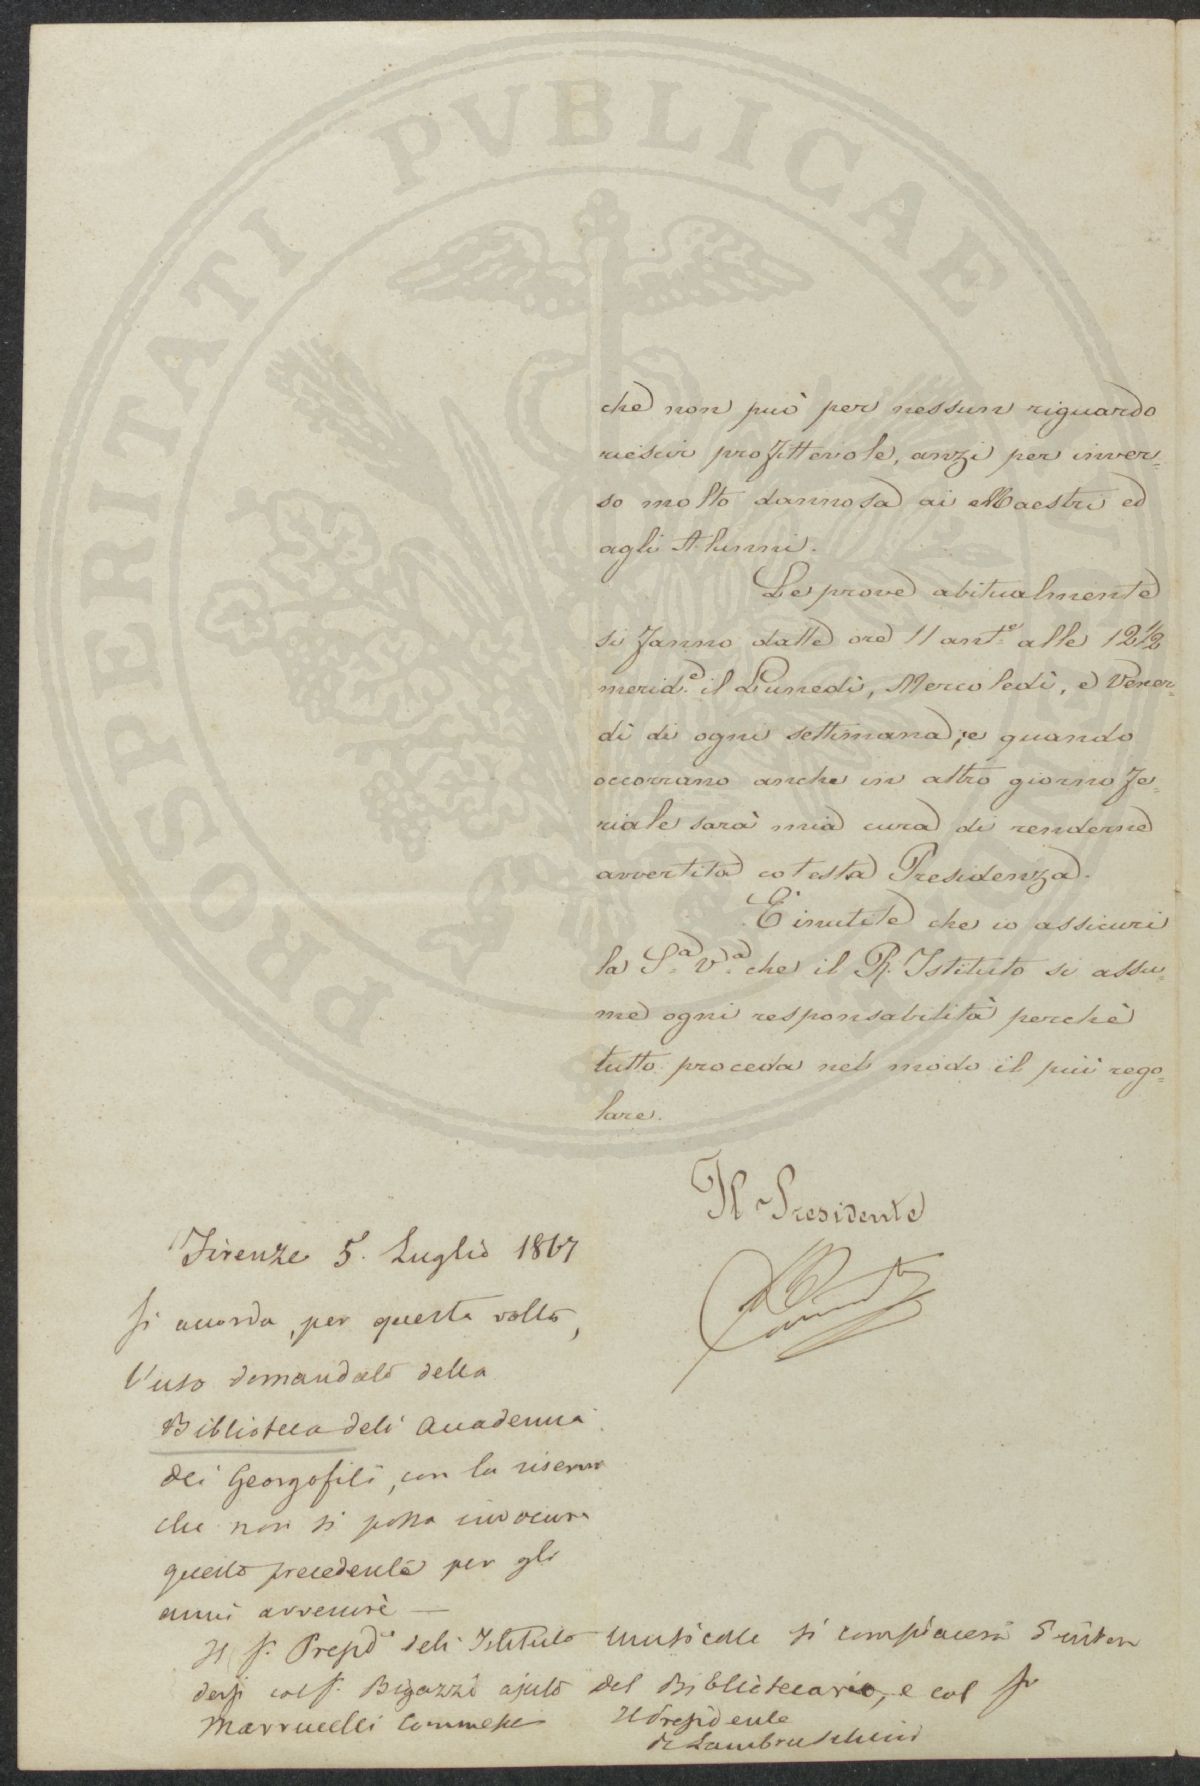 che non può per nessun riguardo
riescir profittevole, anzi per inver=
so molto dannosa ai Maestri ed
agli Alunni.
Le prove abitualmente
si fanno dalle ore 11 ant.e alle 12½
merid.e il Lunedì, Mercoledì, e Vener=
dì di ogni settimana, e quando
occorrano anche in altro giorno fe=
riale sarà mia cura di renderne
avvertita cotesta Presidenza.
È inutile che io assicuri
la S.a V.a che il R. Istituto si assu=
me ogni responsabilità perchè
tutto proceda nel modo il più rego=
lare.
Il Presidente
Firenze 5. Luglio 1867
Si accorda, per questa volta,
l'uso domandato della
Biblioteca dell' Accademia
dei Georgofili, con la riserva
che non si possa invocare
questo precedente per gli
anni avvenire —
Il S. Presid.e dell' Istituto Musicale si compiacerà d'inten
dersi col S. Bigazzi ajuto del Bibliotecario, e col Sr
Marrucelli Commesso
Il Presidente
R. Lambruschini
PROSPERITATI PVBLICAE